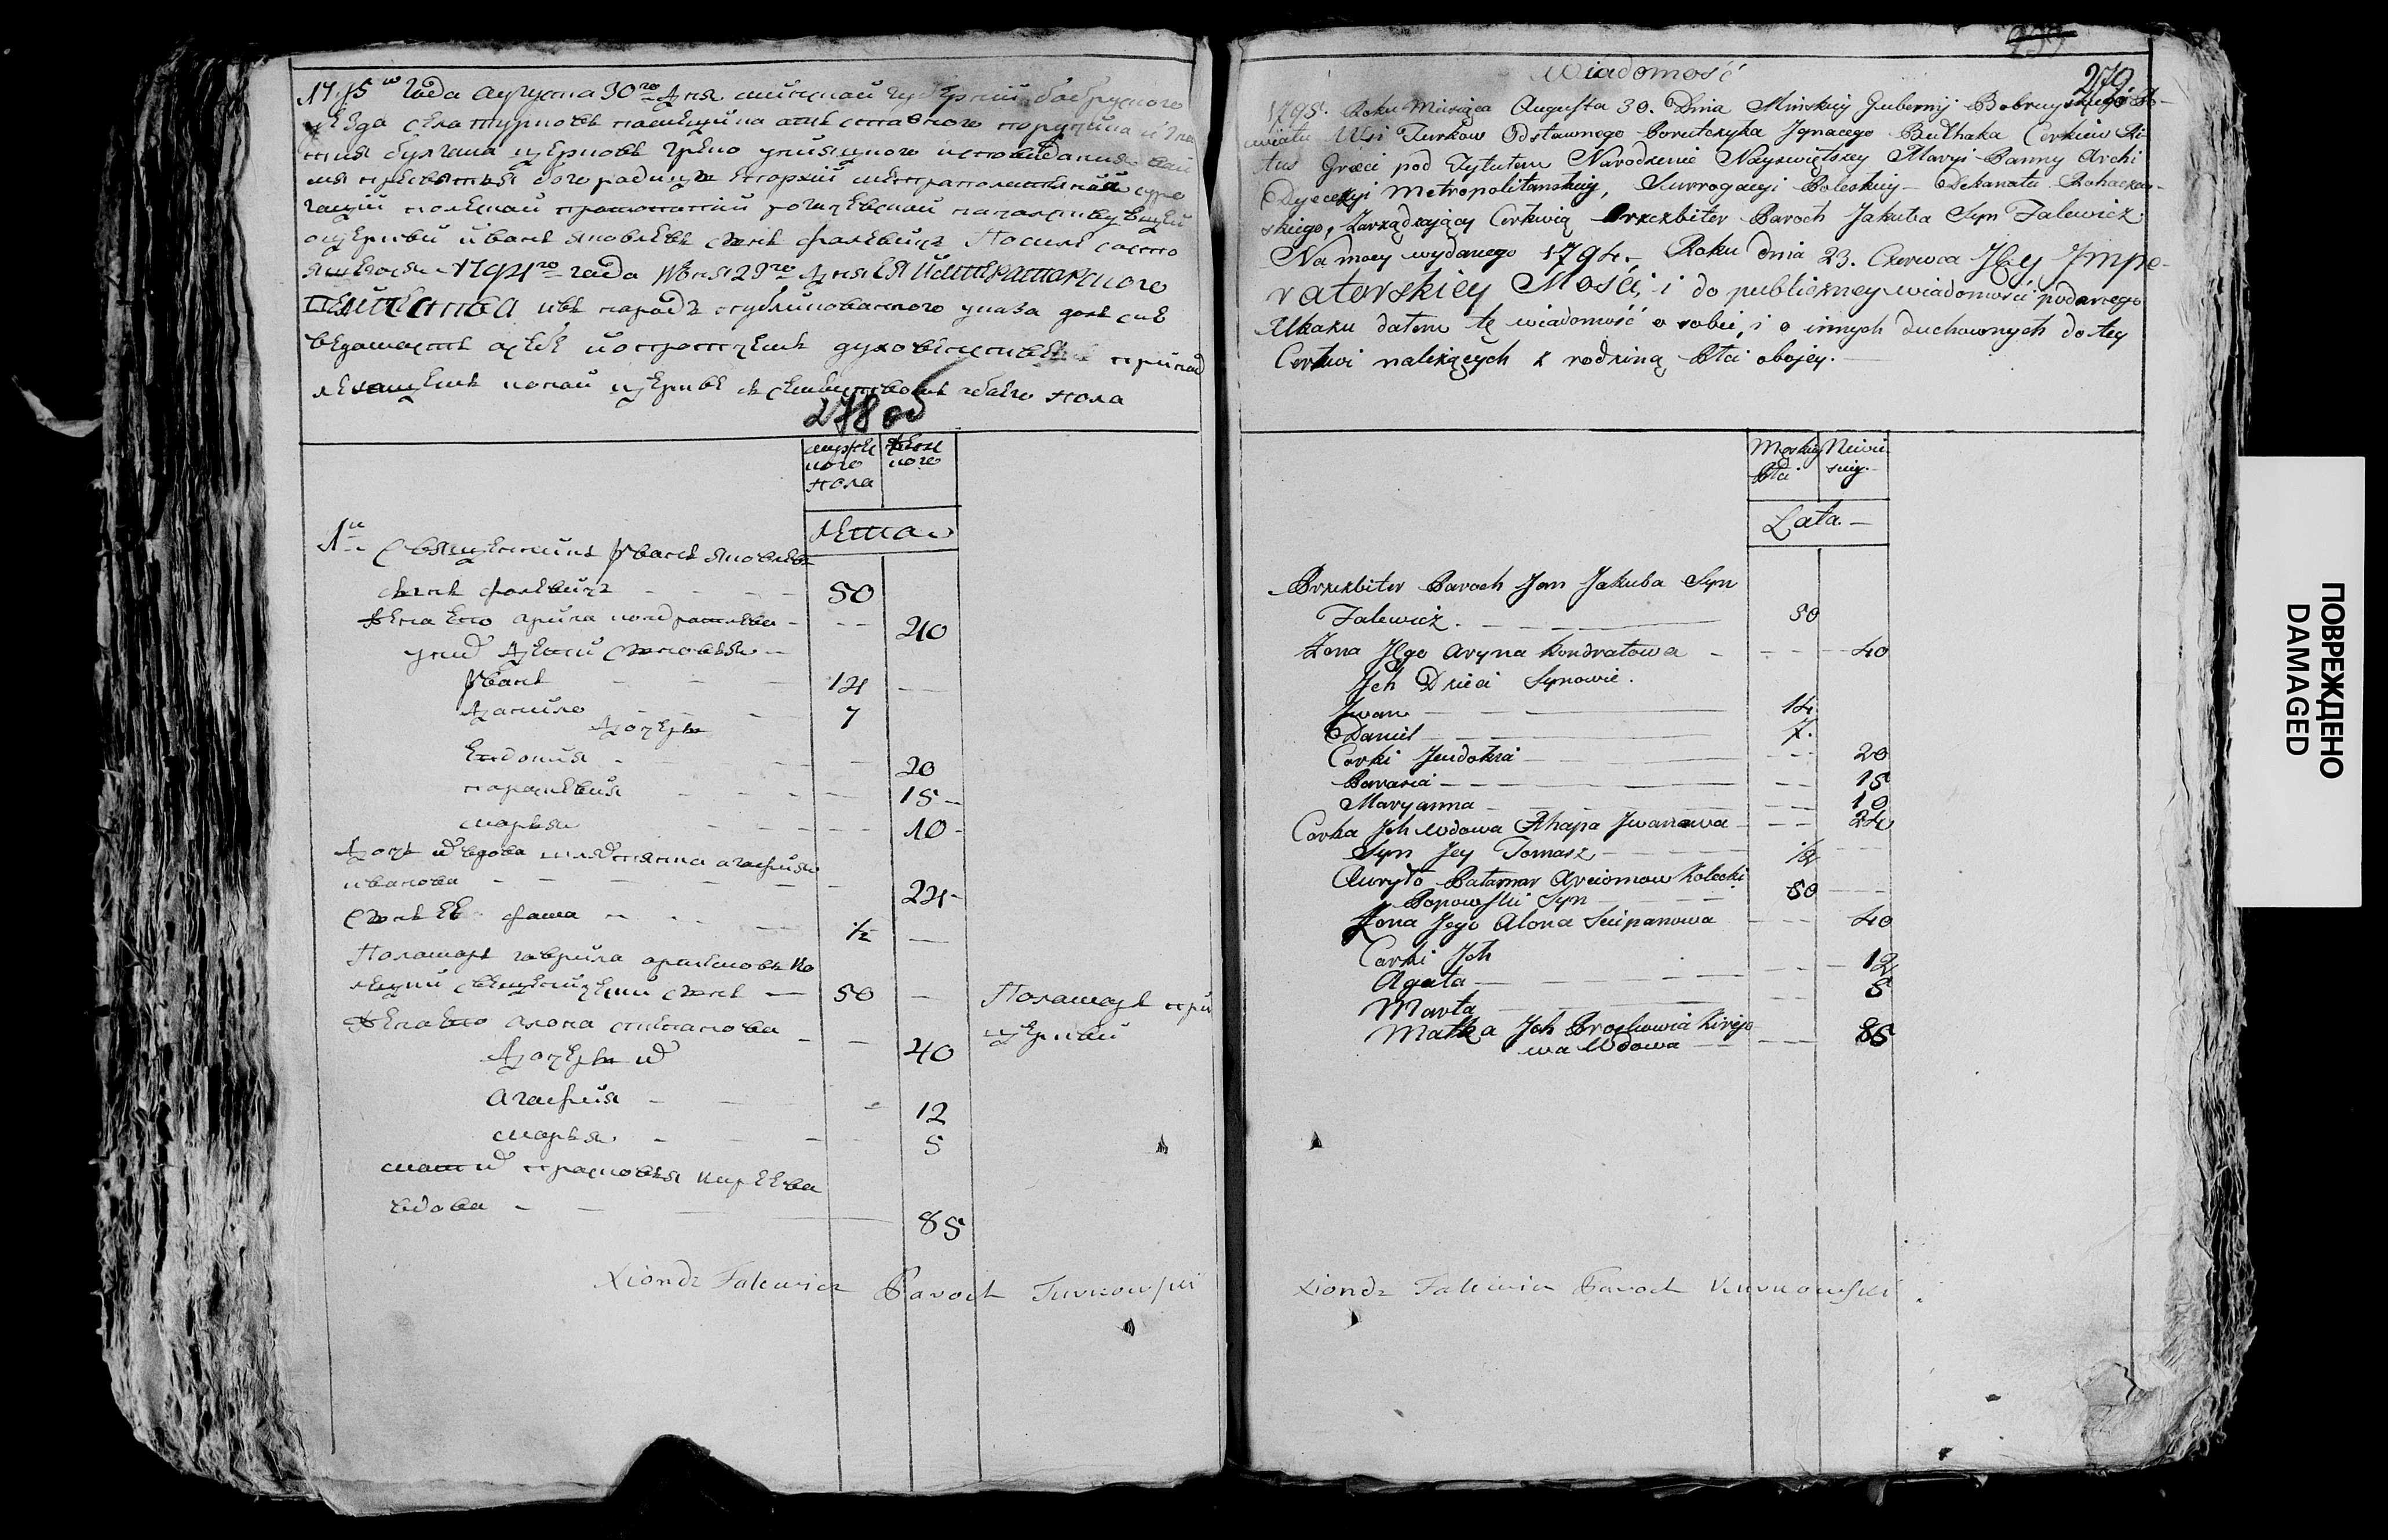 1795го года августа 30го дня минской губернии бобруского
уезда села турковъ помещика отъ ставного порутчика игна
тия булгака церковъ греко униацкого исповедания
пресвятыя богородицы епархии митрополитанской суро
гации полеской протопопии рогачевской началствующей
оцеркви иванъ яковлевъ сынъ фалевичъ Посиле состо
явшегося 1794го года июня 23го дня ЕЯ ИМПЕРАТОРСКОГО
ВЕЛИЧЕСТВА ивъ народъ публикованного указа далъ сие
ведомость осебе ипротчемъ духовенстве принад
лежащемъ ктой церкве съ семействомъ обаего пола
278 об
мужес
кого
пола
женс
кого
лета
1й Священникъ Иванъ яковлевъ
сынъ фалевичъ 50
жена его арина кондратьева 40
унихъ дети сыновья
Иванъ 14
данило 7
дочери
евдокия 20
параскевия 15
марья 10
дочь ихъ вдова агафия
иванова 24
сынъ ее фома 1/2
Паламарь гаврила артемовъ ко
лецкий сынъ 50 Паламарь при
церкви
жена его алона степанова 40
дочери ихъ
агафия 12
марья 5
мать ихъ прасковья киреева
вдова 85
Xiondz Falewicz Paroch Turkowski
239
279
Wiadomość
1795. Roku Miesiąca Augusta 30. Dnia Minskiey Gubernij Bobruyskiego Po-
wiatu Wsi Turkow Odstawnego Porutczyka Jgnacego Bułhaka Cerkiew Ri-
tus Græci pod Tytułem Narodzenie Nayświętszey Maryi Panny Archi
Dyecezyi Metropolitanskiey, Surrogacyi Poleskiey Dekanatu Rohaczew-
skiego, Zarządzający Cerkwią Przezbiter Paroch Jakuba Syn Falewicz
Na mocy wydanego 1794. Roku dnia 23. Czerwca Jey Jmpe-
ratorskiey Mości, i do publiczney wiadomości podanego
Ukazu datem tę wiadomość o sobie, i o innych duchownych do tey
Cerkwi należących z rodziną Płci obojey.
Męskiey
Płci
Niewie
sciey
Lata
Przezbiter Paroch Jan Jakuba Syn
Falewicz. 50
Żona Jego Aryna Kondratowa 40
Jch Dzieci Synowie.
Jwan 14
Daniel 7.
Corki Jeudokia 20
Parasia 15
Maryanna 10
Corka Jch Wdowa Ahapa Jwanowa 24
Syn Jey Tomasz 1/2
Auryło Patamar Arciomow Kolecki
Popowski Syn 50
Żona Jego Alona Sciepanowa 40
Corki Jch
Agata 12
Marta 5
Matka Jch Proskowia Kireje
wa Wdowa 85
Xiondz Falewicz Paroch Turkowski
ПОВРЕЖДЕНО
DAMAGED